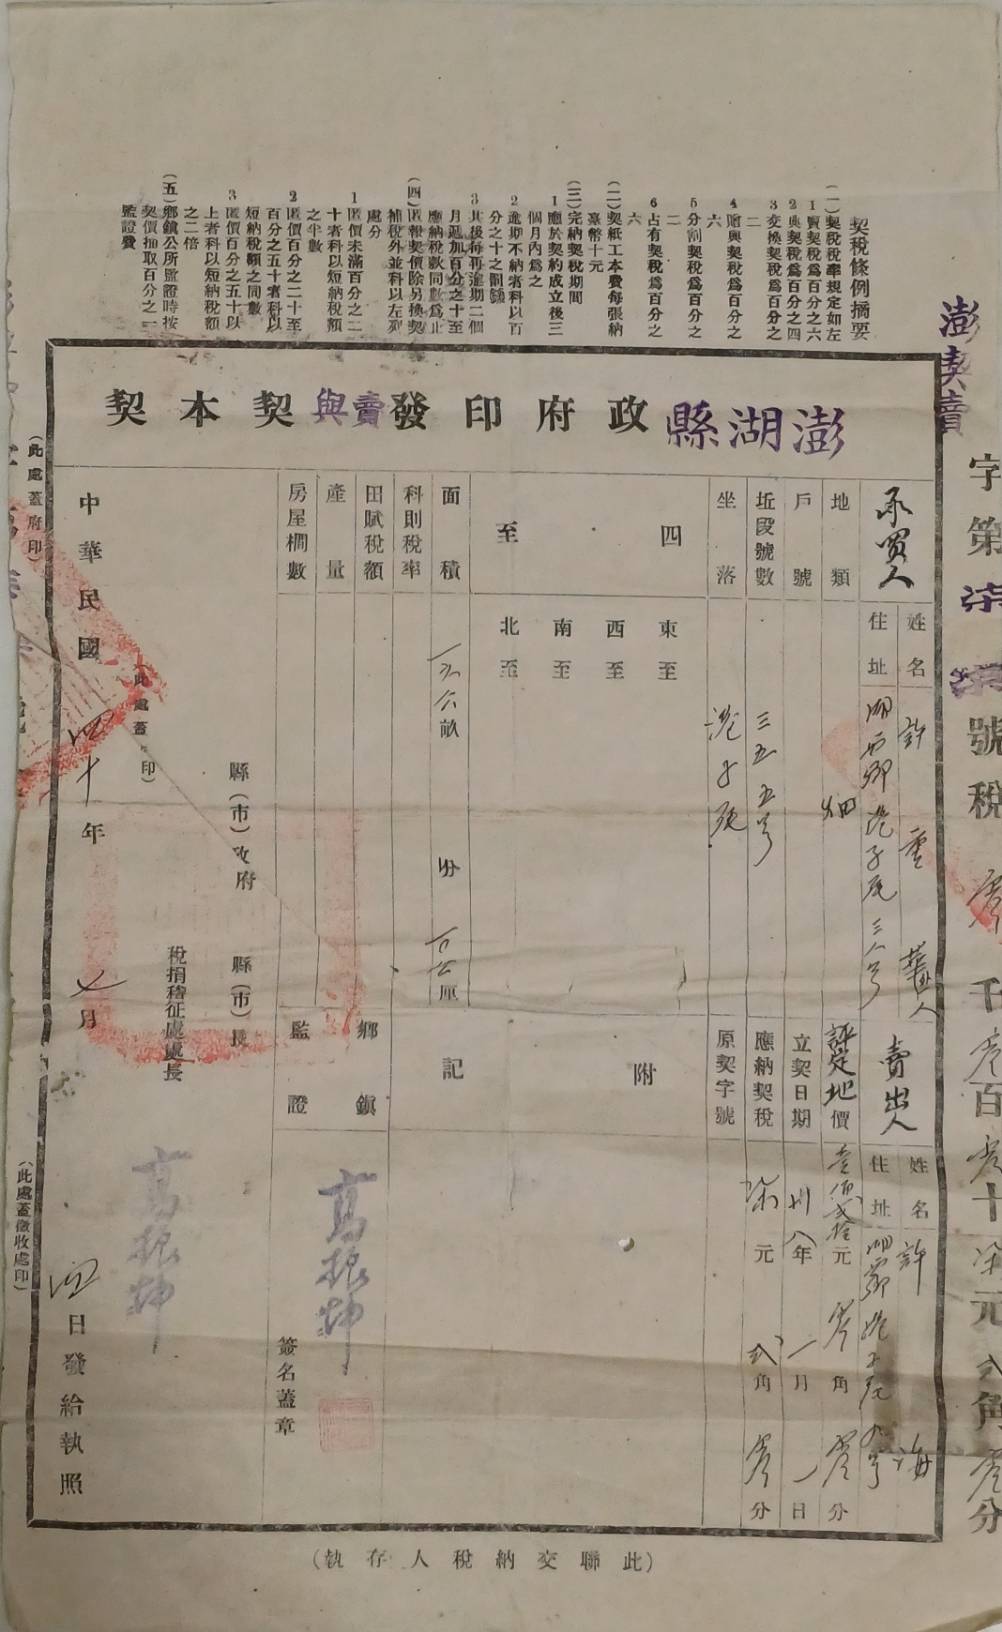 契稅條例摘要
(一)契稅稅率規定如左
1賣契稅爲百分之六
2典契稅爲百分之四
3交換契稅爲百分之
二
4贈與契稅爲百分之
六
5分割契稅爲百分之
二
6占有契稅爲百分之
六
(二)契紙工本費每張納
臺幣十元
(三)完納契稅期間
1應於契約成立後三
個月內爲之
2逾期不納者科以百
分之十之罰鍰
3其後每再逾期二個
月遞加百分之十至
應納稅款同數爲止
(四)匿報契價除另換契
補稅外並科以左列
處分
1匿價未滿百分之二
十者科以短納稅額
之半數
2匿價百分之二十至
百分之五十者科以
短納稅額之同數
3匿價百分之五十以
上者科以短納稅額
之二倍
(五)鄉鎮公所監證時按
契價抽取百分之一
監證費
澎契賣
字第柒 號稅 零千零百零十柒元弍角零分
澎湖縣政府印發賣與契本契
承買人
姓名 許 重 華
住址 湖西鄉港子尾三八号
賣出人
姓名 許 海
住址 港子尾 号
地類 畑
評定地價 壹佰弍拾元零角零分
戶號
立契日期 卅八年一月一日
坵段號數 三五五号
應納契稅 柒元弍角零分
坐落 港子尾
原契字號
四至
東至
西至
南至
北至
附記
面積 畝 分 厘
科則稅率
田賦稅額
產量
房屋橺數
鄉鎮監證
高振坤
簽名蓋章
縣(市)政府 縣(市)長
稅捐稽征處處長
高振坤
(此處蓋 印)
中華民國四十年七月四日發給執照
(此處蓋府印)
(此處蓋徵收處印)
(此聯交納稅人存執)